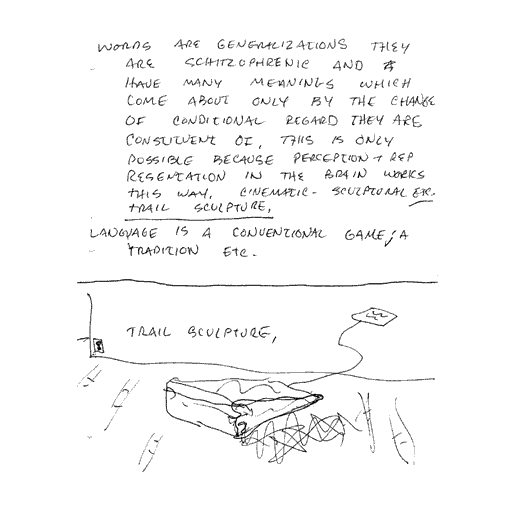 WORDS ARE GENERALIZATIONS THEY
ARE SCHITZOPHRENIC AND
HAVE MANY MEANINGS WHICH
COME ABOUT ONLY BY THE CHANGE
OF CONDITIONAL REGARD THEY ARE
CONSTITUENT OF, THIS IS ONLY
POSSIBLE BECAUSE PERCEPTION + REP
RESENTATION IN THE BRAIN WORKS
THIS WAY, CINEMATIC - SCULPTURAL ETC.
TRAIL SCULPTURE,
LANGUAGE IS A CONVENTIONAL GAME; A
TRADITION ETC.
TRAIL SCULPTURE,